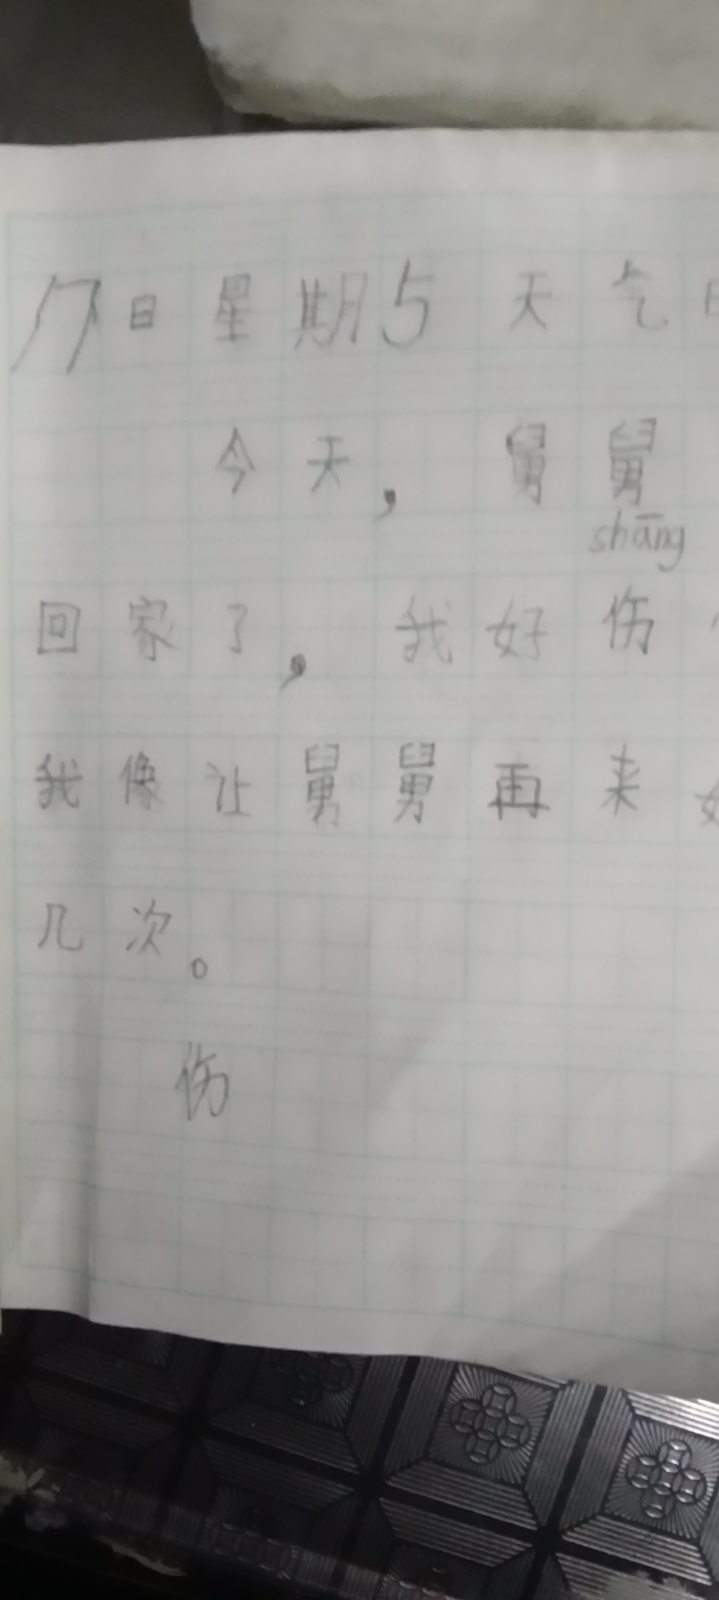 17日星期5 天气
今天，舅舅
shāng
回家了，我好伤
我像让舅舅再来
几次。
伤